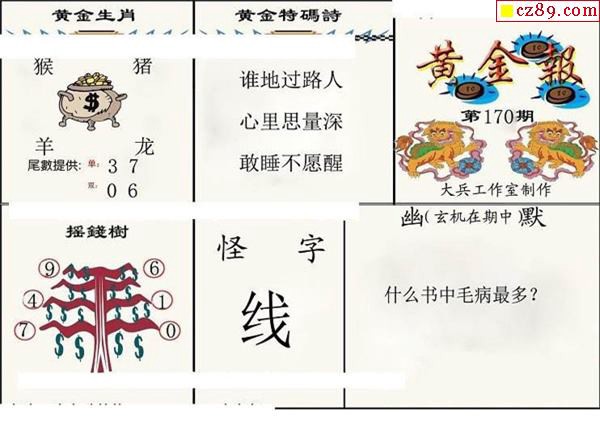 cz89.com
黄金生肖
猴 猪
$
羊 龙
尾數提供: 单: 3 7
双: 0 6
黄金特碼詩
谁地过路人
心里思量深
敢睡不愿醒
黄金報
第170期
大兵工作室制作
摇錢樹
9 6
4 1
7 0
怪 字
线
幽(玄机在期中)默
什么书中毛病最多?